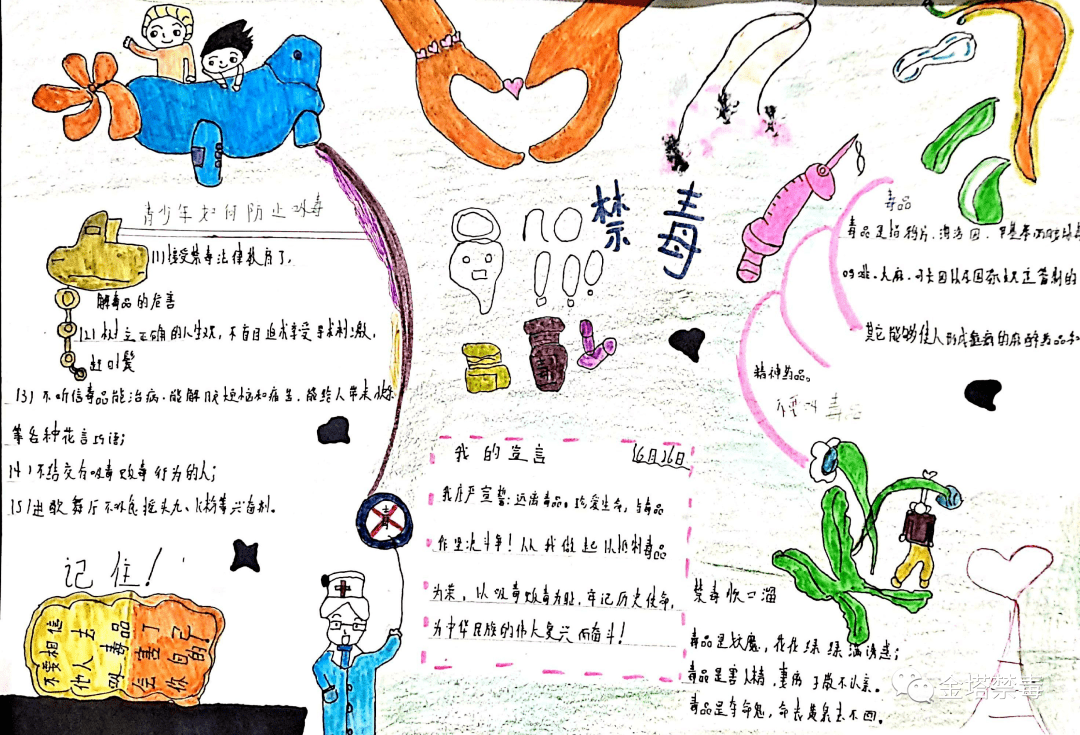 青少年如何防止吸毒
(1)接受禁毒法律教育了,
解毒品的危害
(2)树立正确的人生观,不盲目追求享受寻求刺激,
赶时髦
(3)不听信毒品能治病,能解脱烦恼和痛苦,能给人带来快乐
等各种花言巧语;
(4)不结交有吸毒贩毒行为的人;
(5)进歌舞厅不吸食摇头丸、K粉等兴奋剂。
记住!
不要相信
他人去
吸毒品
会害了
你自己
的!
no
!!!
禁毒
毒
毒
我的宣言
6月26日
我庄严宣誓:远离毒品。珍爱生命,与毒品
作坚决斗争!从我做起以抵制毒品
为荣,以吸毒贩毒为耻,牢记历史使命,
为中华民族的伟大复兴而奋斗!
毒品
毒品是指鸦片、海洛因、甲基苯丙胺
吗啡、大麻、可卡因以及国家规定管制的
其它能够使人形成瘾癖的麻醉药品和
精神药品。
不要吸毒
禁毒快口溜
毒品是妖魔,花花绿绿满诱惑;
毒品是害人精,妻离子散不认亲。
毒品是夺命鬼,命丧黄泉去不回。
金塔禁毒